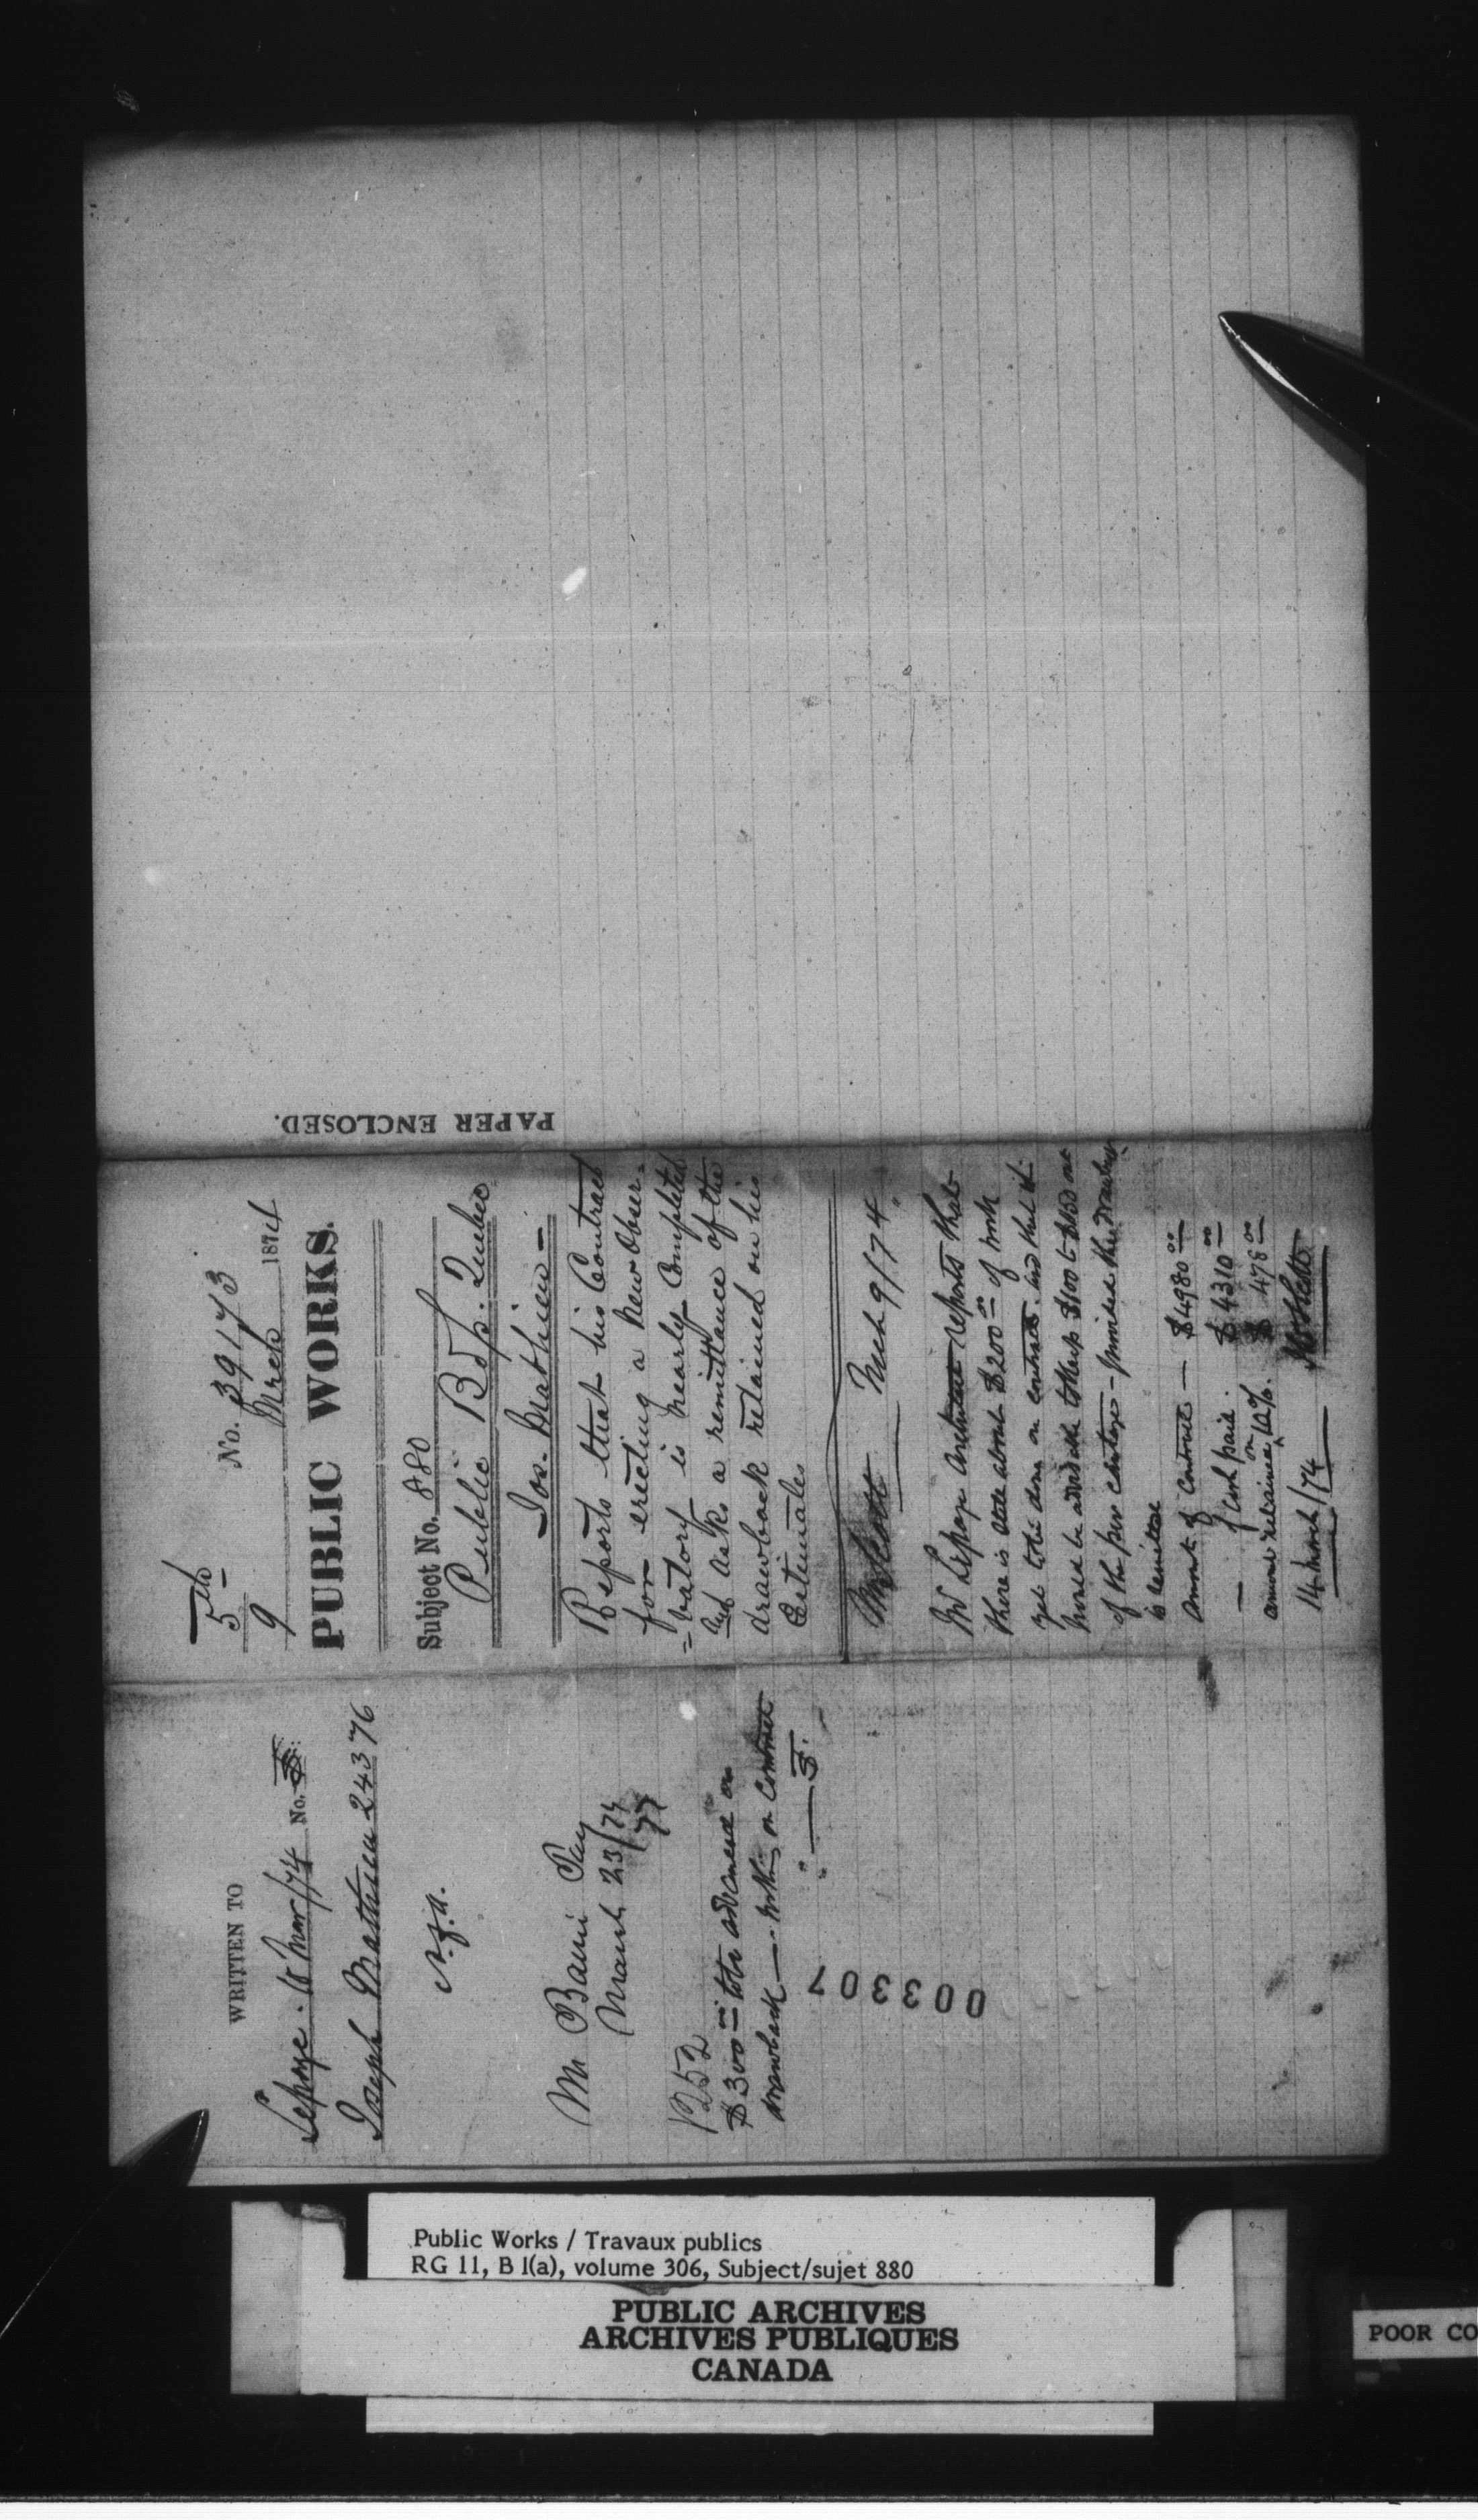 WRITTEN TO
Lepage. 10 Mar/74 No.
Joseph Mathieu 24376
n.f.a.
Mr Baine Pay
March 23/74
P252
$300.00 to be advanced on
drawback — nothing on contract
" —
003307
5th
9
No. 39173
March 1874
PUBLIC WORKS.
Subject No. 880
Public Bdg. Quebec
Jos. Mathieu —
Reports that his Contract
for erecting a New Obser=
=vatory is nearly Completed
and asks a remittance of the
drawback retained on his
Estimates
Mr Scott — Mch 9/74.
Mr Lepage Architect reports that
there is still about $200.00 of work
yet to be done on contract. and that it
would be advisable to keep $100 to $150 out
of the per centage — provided the drawback
is remitted
Amount of Contract — $4980.00
— of Cash paid. $4310.00
amount retained on 10%. $478.00
14 March/74
PAPER ENCLOSED.
Public Works / Travaux publics
RG 11, B I(a), volume 306, Subject/sujet 880
PUBLIC ARCHIVES
ARCHIVES PUBLIQUES
CANADA
POOR CO